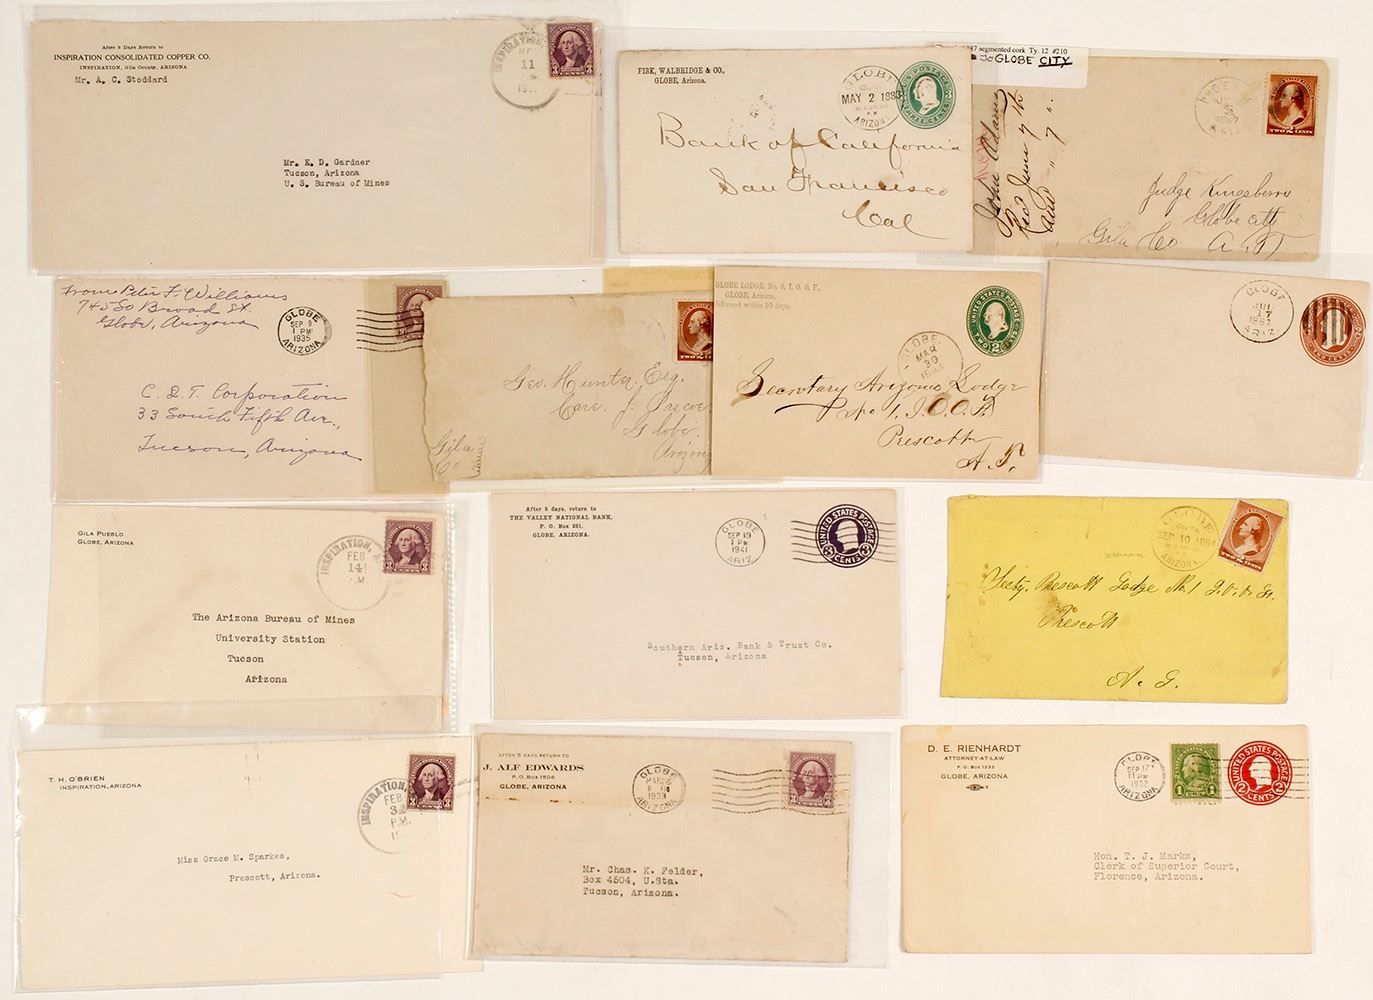 After 5 Days Return to
INSPIRATION CONSOLIDATED COPPER CO.
INSPIRATION, Gila County, ARIZONA
Mr. A. C. Stoddard
INSPIRATION,
11
3 CENTS 3
Mr. E. D. Gardner
Tucson, Arizona
U. S. Bureau of Mines
FISK, WALBRIDGE & CO.,
GLOBE, Arizona.
GLOBE
MAY 2 1883
ARIZONA
U.S. POSTAGE
THREE CENTS
Bank of California
San Francisco
Cal
887 segmented cork Ty. 12 #210
to GLOBE CITY
John Adams
Rec June 7th
TWO 2 CENTS
Judge Kingsberry
Globe City
Gila Co A. T.
From Peter F. Williams
745 So Broad St.
Globe, Arizona
GLOBE
SEP 9
1 PM
1935
ARIZONA
C. & T. Corporation
33 South Fifth Ave.,
Tucson, Arizona
Geo. Hunter, Esq.
Care J. Pascoe
Globe
Gila
Co
Arizon
GLOBE LODGE, No. 6, I. O. O. F.,
GLOBE, Arizona,
delivered within 10 days.
GLOBE.
MAR
20
UNITED STATES POSTAGE
TWO 2 CENTS
Secretary Arizona Lodge
No 1, I.O.O.F.
Prescott
A.T.
GLOBE
JUL
17
1887
ARIZ
TWO CENTS
GILA PUEBLO
GLOBE, ARIZONA
INSPIRATION, A
FEB
14
P.M.
3 CENTS 3
The Arizona Bureau of Mines
University Station
Tucson
Arizona
After 5 days, return to
THE VALLEY NATIONAL BANK,
P. O. Box 231,
GLOBE, ARIZONA.
GLOBE
SEP 19
7 PM
1941
ARIZ.
UNITED STATES POSTAGE
3 CENTS 3
Southern Ariz. Bank & Trust Co.
Tucson, Arizona
GLOBE
SEP 10 1884
ARIZONA
TWO 2 CENTS
Secty. Prescott Lodge No. 1 I.O.O.F.
Prescott
A. T.
T. H. O'BRIEN
INSPIRATION, ARIZONA
INSPIRATION,
FEB
3
P.M.
3 CENTS 3
Miss Grace M. Sparkes,
Prescott, Arizona.
AFTER 5 DAYS RETURN TO
J. ALF EDWARDS
P. O. BOX 1506
GLOBE, ARIZONA
GLOBE
1933
ARIZONA
3 CENTS 3
Mr. Chas. K. Felder,
Box 4504, U.Sta.
Tucson, Arizona.
D. E. RIENHARDT
ATTORNEY-AT-LAW
P. O. BOX 1233
GLOBE, ARIZONA
GLOBE
SEP 17
11 PM
1932
ARIZONA
1 CENT 1
UNITED STATES POSTAGE
2 CENTS 2
Hon. T. J. Marks,
Clerk of Superior Court,
Florence, Arizona.